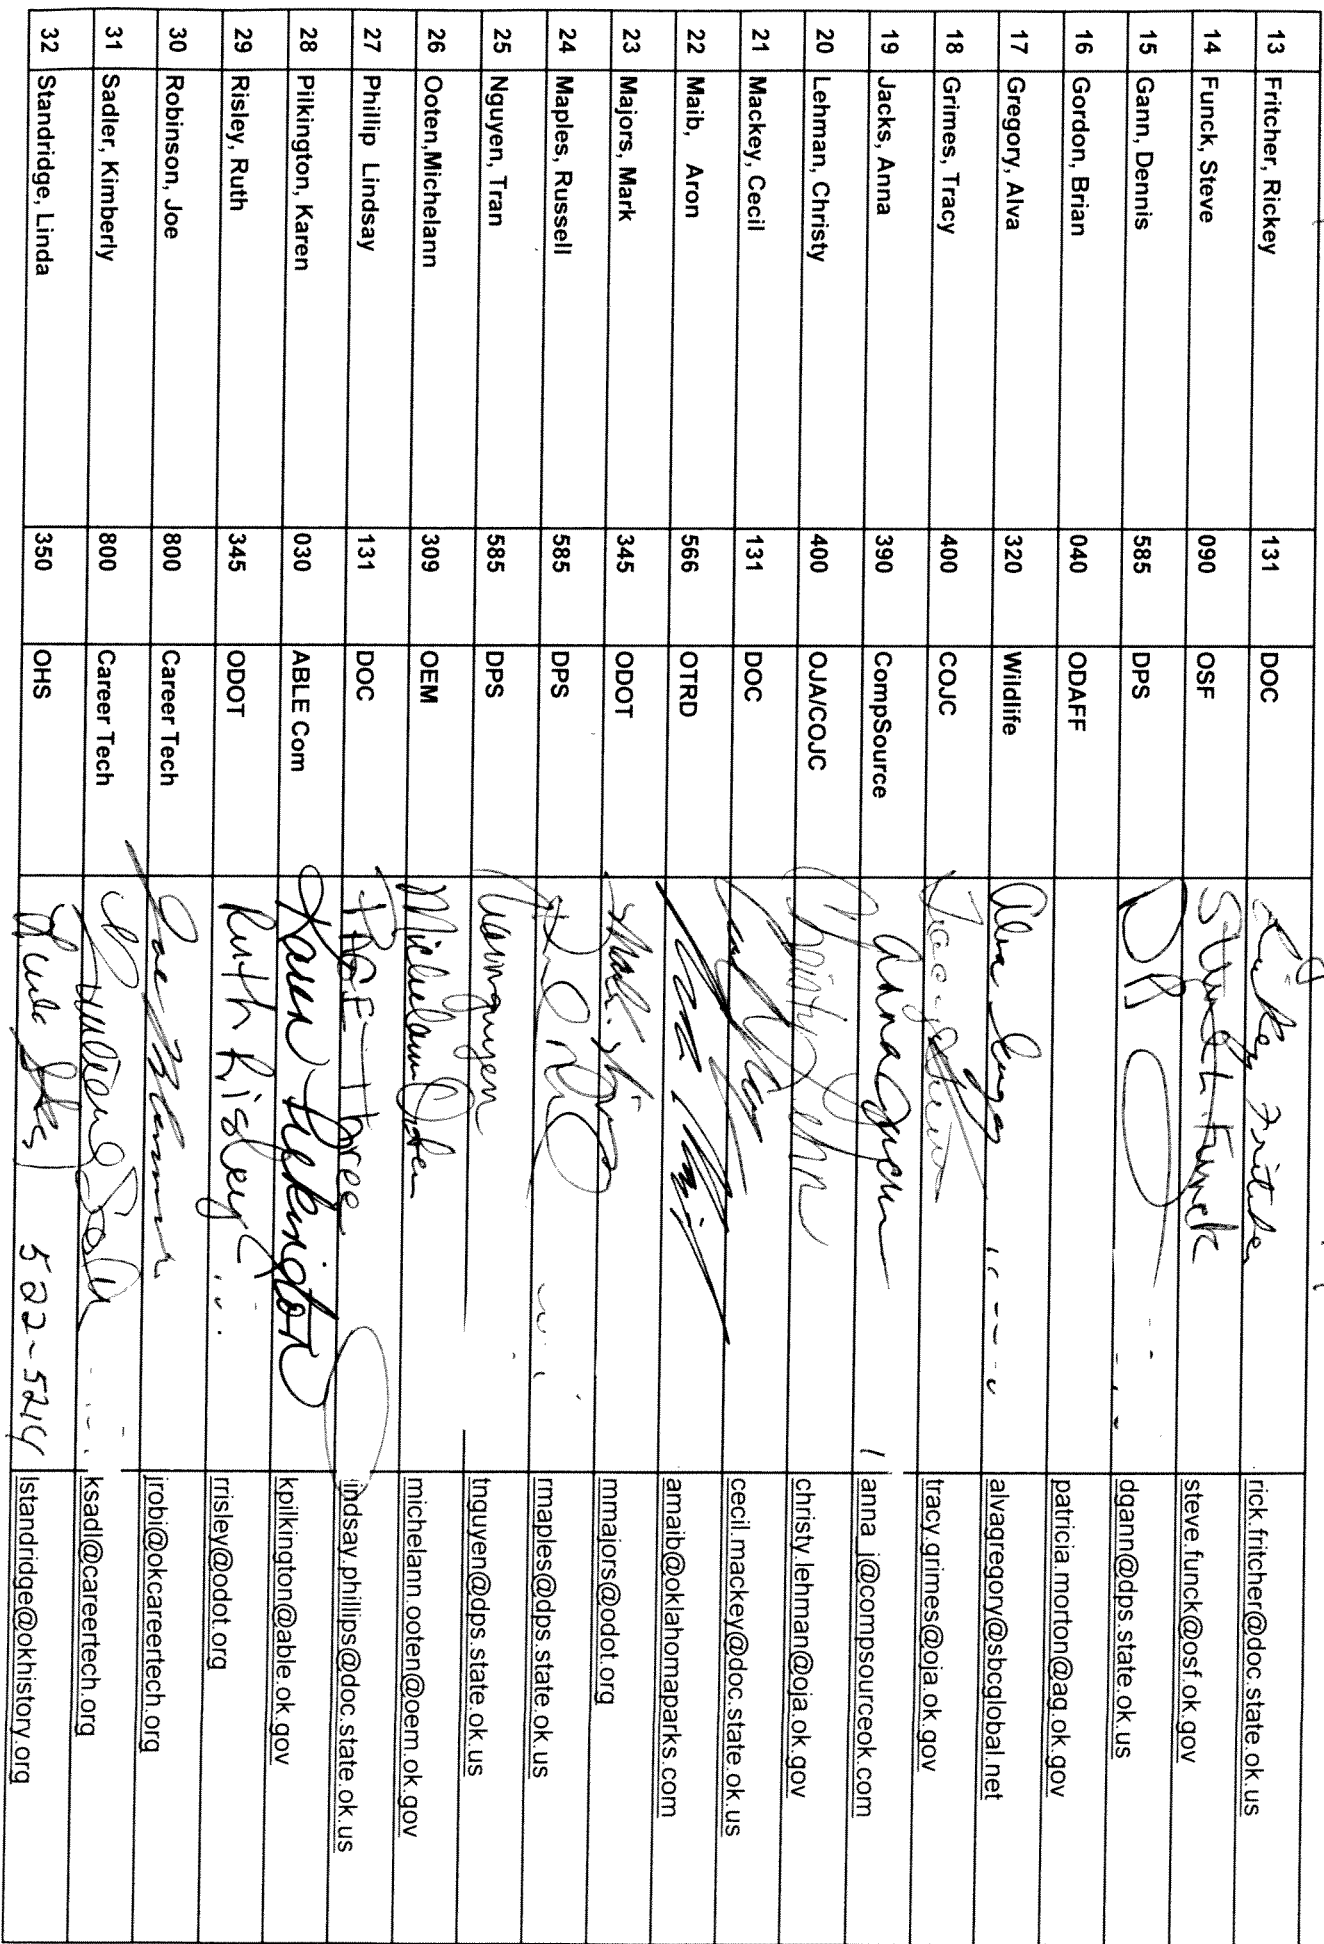 13 Fritcher, Rickey 131 DOC Rickey Fritcher rick.fritcher@doc.state.ok.us
14 Funck, Steve 090 OSF Steve Funck steve.funck@osf.ok.gov
15 Gann, Dennis 585 DPS dgann@dps.state.ok.us
16 Gordon, Brian 040 ODAFF patricia.morton@ag.ok.gov
17 Gregory, Alva 320 Wildlife Alva alvagregory@sbcglobal.net
18 Grimes, Tracy 400 COJC Tracy tracy.grimes@oja.ok.gov
19 Jacks, Anna 390 CompSource Anna anna_j@compsourceok.com
20 Lehman, Christy 400 OJA/COJC Christy christy.lehman@oja.ok.gov
21 Mackey, Cecil 131 DOC cecil.mackey@doc.state.ok.us
22 Maib, Aron 566 OTRD amaib@oklahomaparks.com
23 Majors, Mark 345 ODOT Mark mmajors@odot.org
24 Maples, Russell 585 DPS rmaples@dps.state.ok.us
25 Nguyen, Tran 585 DPS tnguyen@dps.state.ok.us
26 Ooten,Michelann 309 OEM Michelann Ooten michelann.ooten@oem.ok.gov
27 Phillip Lindsay 131 DOC PAGE Three lindsay.phillips@doc.state.ok.us
28 Pilkington, Karen 030 ABLE Com Karen Pilkington kpilkington@able.ok.gov
29 Risley, Ruth 345 ODOT Ruth Risley rrisley@odot.org
30 Robinson, Joe 800 Career Tech Joe jrobi@okcareertech.org
31 Sadler, Kimberly 800 Career Tech ksadl@careertech.org
32 Standridge, Linda 350 OHS 522-5214 lstandridge@okhistory.org